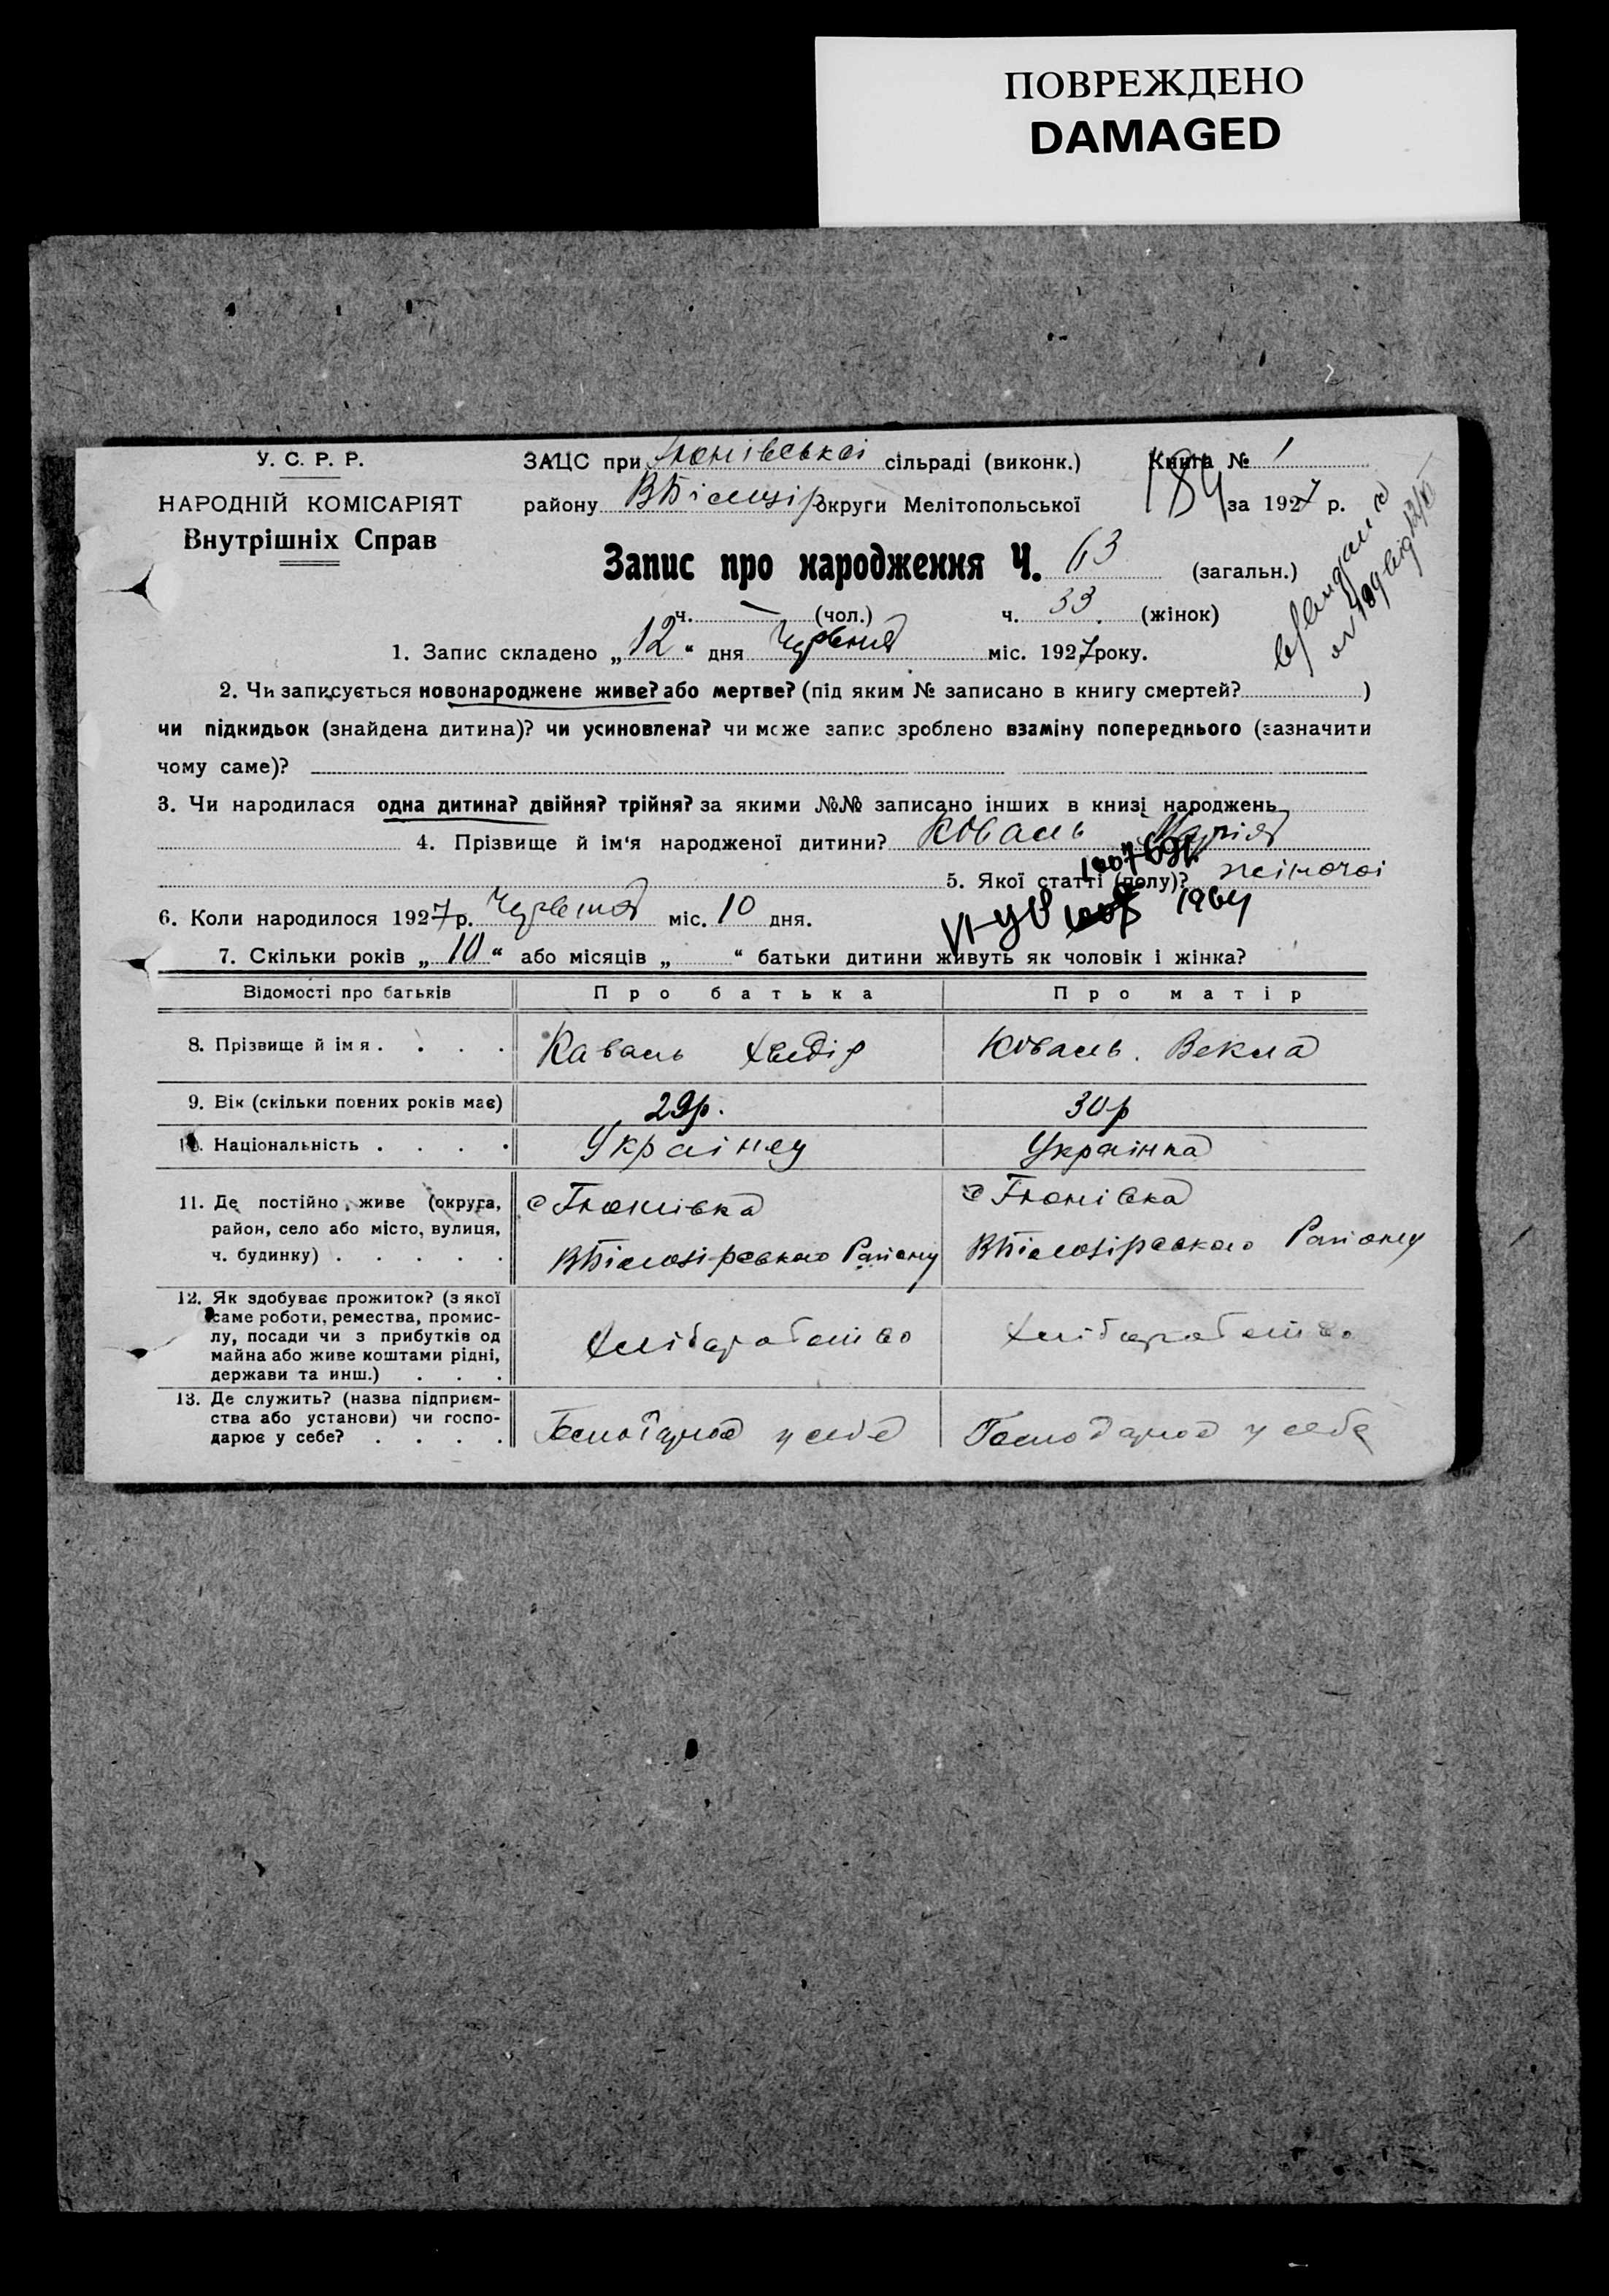 ПОВРЕЖДЕНО
DAMAGED
У. С. Р. Р.
НАРОДНІЙ КОМІСАРІЯТ
Внутрішніх Справ
ЗАЦС при Гюнівській сільраді (виконк.)
Книга № 1
району ВБілозір округи Мелітопольської
184 за 1927 р.
Запис про народження Ч. 63 (загальн.)
ч. — (чол.) ч. 33 (жінок)
1. Запис складено „12“ дня Червня міс. 1927 року.
2. Чи записується новонароджене живе? або мертве? (під яким № записано в книгу смертей? )
чи підкидьок (знайдена дитина)? чи усиновлена? чи може запис зроблено взаміну попереднього (зазначити
чому саме)?
3. Чи народилася одна дитина? двійня? трійня? за якими №№ записано інших в книзі народжень
4. Прізвище й ім'я народженої дитини? Коваль Марія
5. Якої статті (полу)? жіночоі
1964
6. Коли народилося 1927 р. Червня міс. 10 дня.
7. Скільки років „10“ або місяців „ “ батьки дитини живуть як чоловік і жінка?
Відомості про батьків Про батька Про матір
8. Прізвище й імя . . . . Каваль Хведір Коваль Векла
9. Вік (скільки повних років має) 29р. 30р
10. Національність . . . . Украінец Украінка
11. Де постійно живе (округа,
район, село або місто, вулиця,
ч. будинку) . . . . .
с Гюнівка
ВБілозірського Району
с Гюнівка
ВБілозірського Району
12. Як здобуває прожиток? (з якої
саме роботи, ремества, промис-
лу, посади чи з прибутків од
майна або живе коштами рідні,
держави та инш.) . . .
Хліборобство
Хліборобство
13. Де служить? (назва підприєм-
ства або установи) чи госпо-
дарює у себе? . . . .
Господарює у себе
Господарює у себе